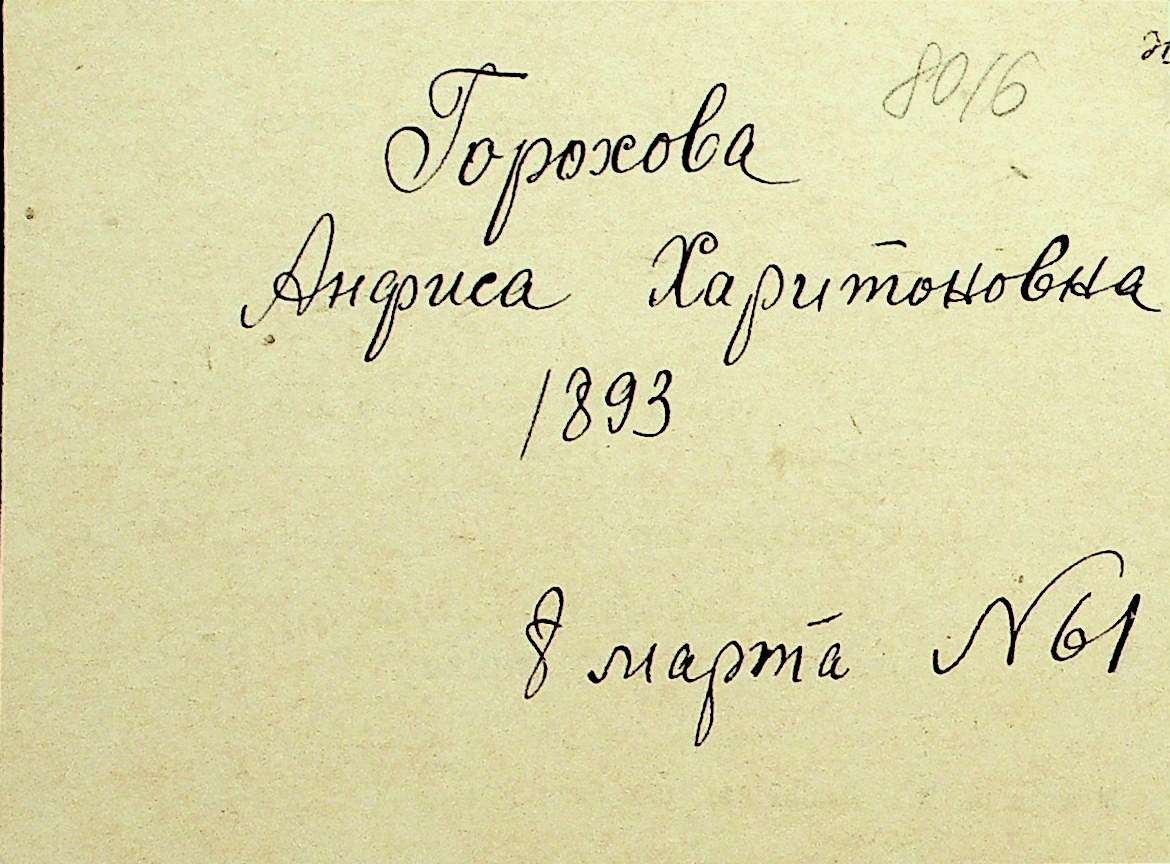 8016
Горохова
Анфиса Харитоновна
1893
8 марта N61